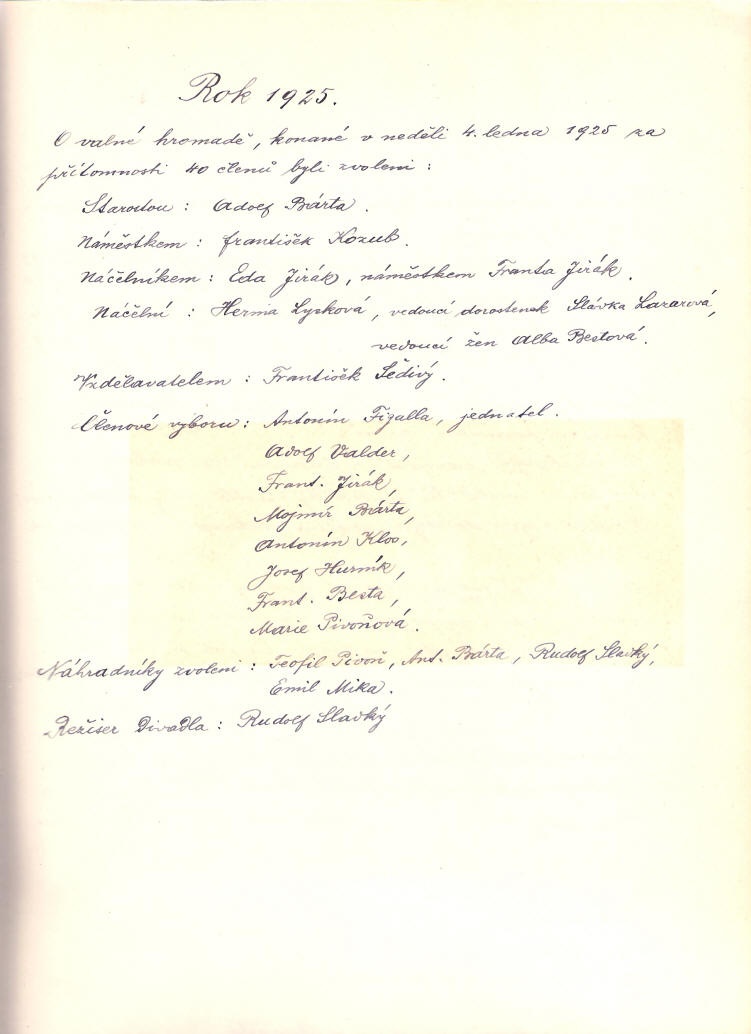 Rok 1925.
O valné hromadě, konané v neděli 4. ledna 1925 za
přítomnosti 40 členů byli zvoleni :
Starostou : Adolf Bárta .
Náměstkem : František Kozub .
Náčelníkem : Eda Jirák, náměstkem Franta Jirák .
Náčelní : Herma Lysková, vedoucí dorostenek Slávka Lazarová,
vedoucí žen Alba Bestová .
Vzdělavatelem : František Šedivý .
Členové výboru : Antonín Figalla, jednatel .
Adolf Valder,
Frant. Jirák,
Mojmír Bárta,
Antonín Klos,
Josef Hurník,
Frant. Besta,
Marie Pivoňová .
Náhradníky zvoleni : Teofil Pivoň, Ant. Bárta, Rudolf Slavký,
Emil Mika .
Režiser Divadla : Rudolf Slavký